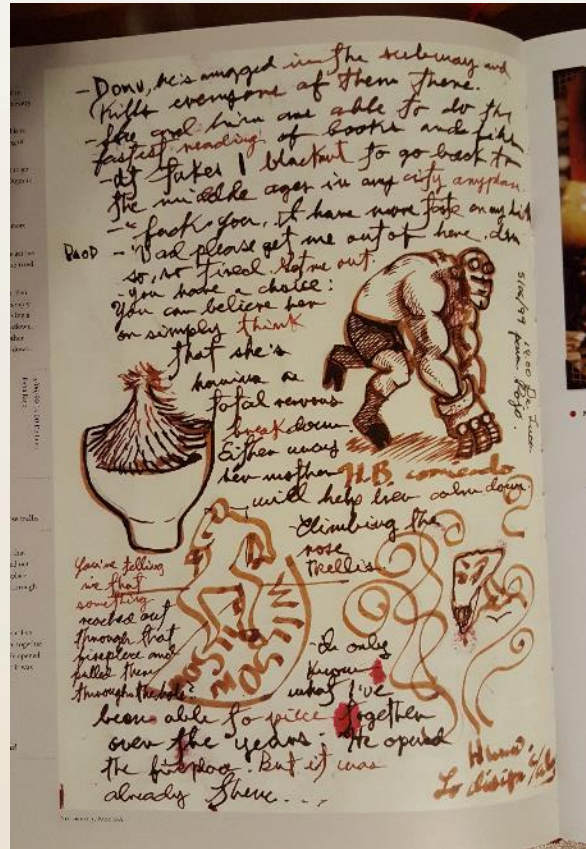 - Donv, he's mugged in the subway and
Kills everyone of them there.
- She and him are able to do the
fastest reading of books and
- It takes 1 blackout to go back to
the middle ages in any city anyplace
- "Fuck you, I have more
- "Dad please get me out of here. I'm
so, so tired. Get me out.
- You have a choice:
You can believe her
or simply think
that she's
having a
total nervous
breakdown.
Either way
her mother
will help her calm down.
H.B. corriendo
5/06/99 14:00 De Fuca
para Rojo.
- Climbing the
rose
trellis.
You're telling
me that
something
reached out
through that
fireplace and
pulled them
through the hole?
- I only
know
what I've
been able to piece together
over the years. He opened
the fireplace. But it was
already there...